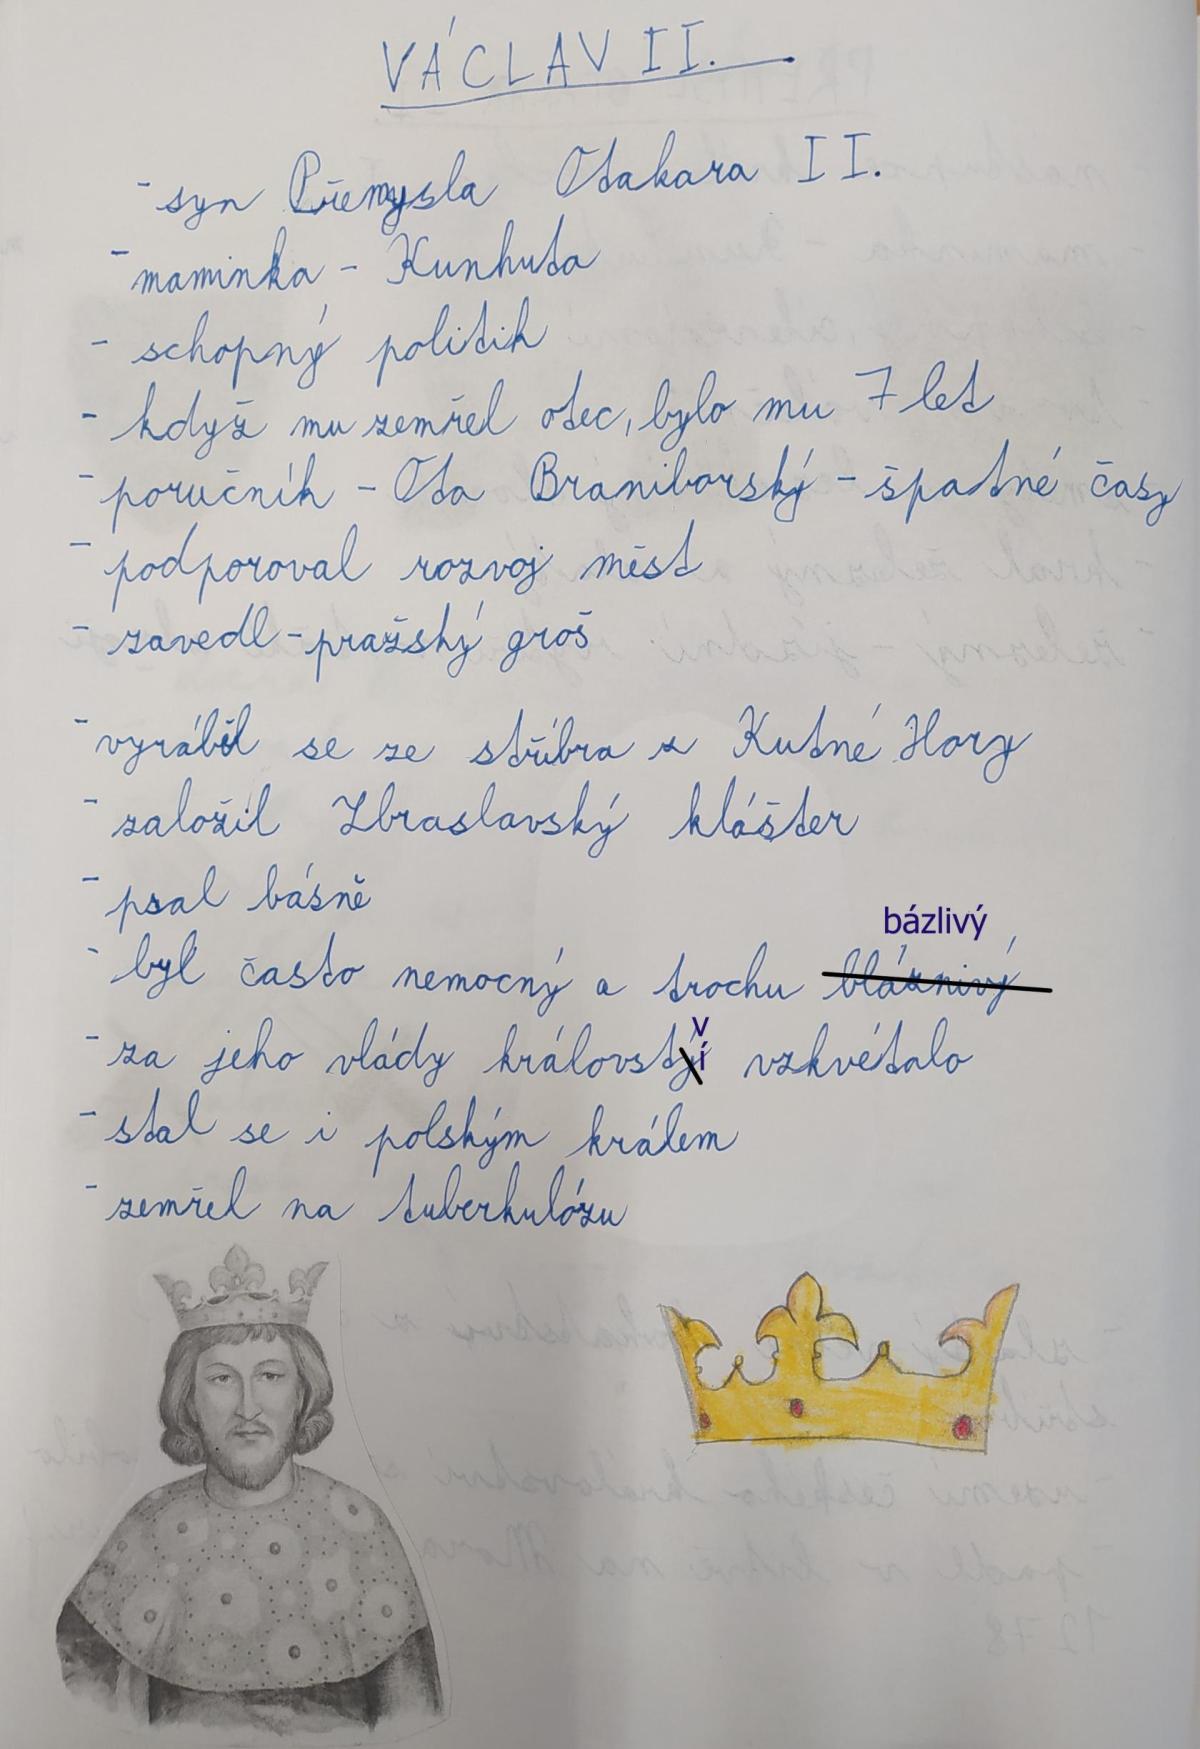 VÁCLAV II.
- syn Přemysla Otakara II.
- maminka - Kunhuta
- schopný politik
- když mu zemřel otec, bylo mu 7 let
- poručník - Ota Braniborský - špatné časy
- podporoval rozvoj měst
- zavedl - pražský groš
- vyráběl se ze stříbra z Kutné Hory
- založil Zbraslavský klášter
- psal básně
bázlivý
- byl často nemocný a trochu bláznivý
- za jeho vlády království vzkvétalo
- stal se i polským králem
- zemřel na tuberkulózu